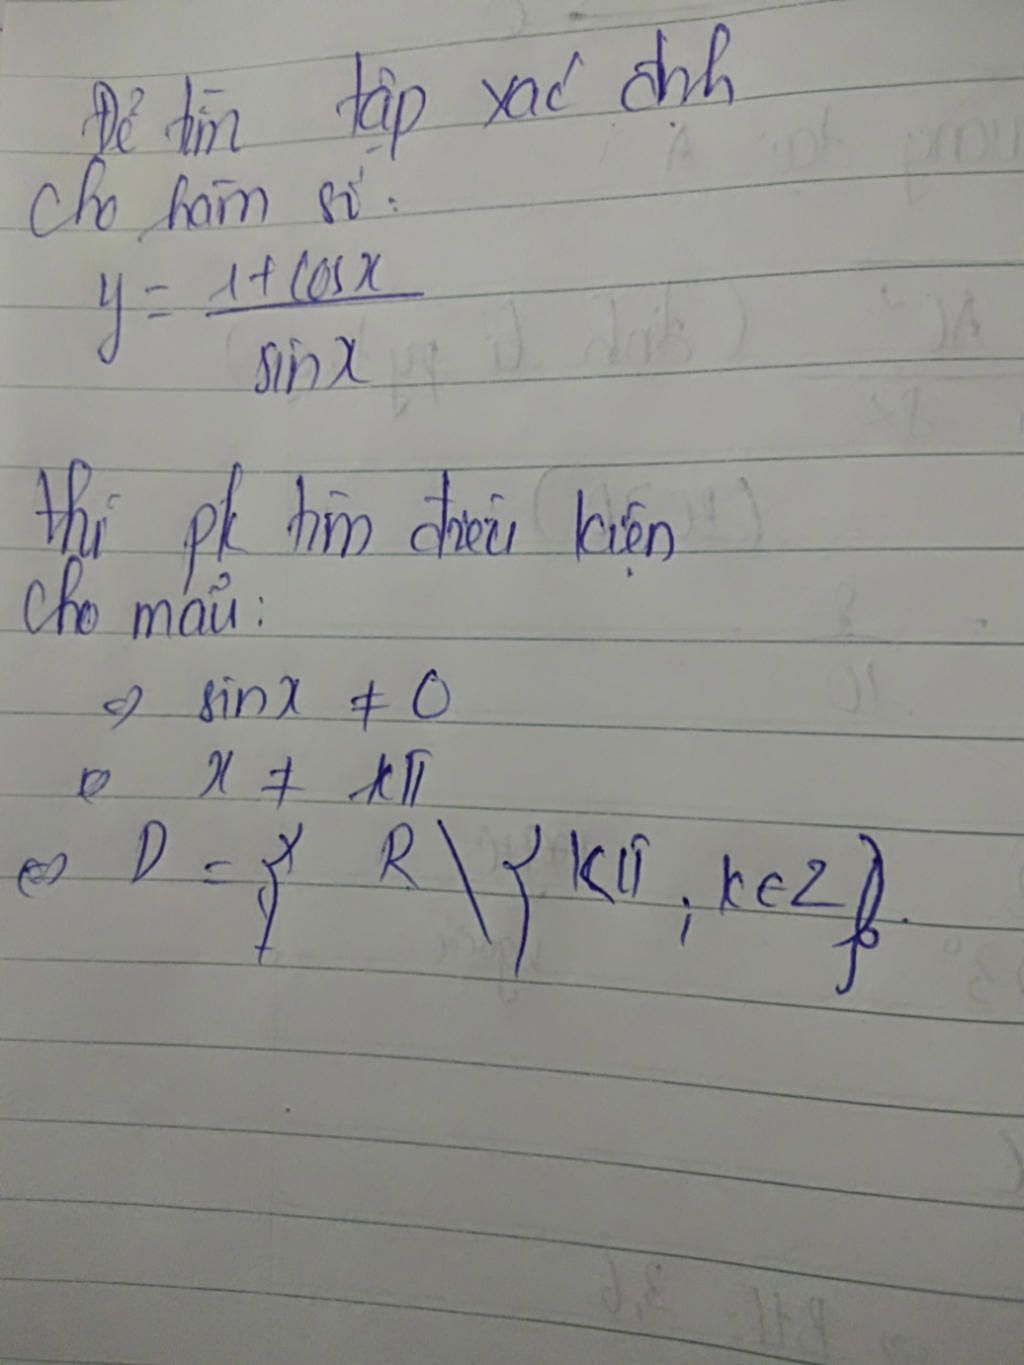 Để tìm tập xác định
cho hàm số:
y = 1+cosx
sinx
thì pk tìm điều kiện
cho mẫu:
⇒ sinx ≠ 0
⇔ x ≠ kπ
⇔ D = { R \ { kπ ; k ∈ Z }.